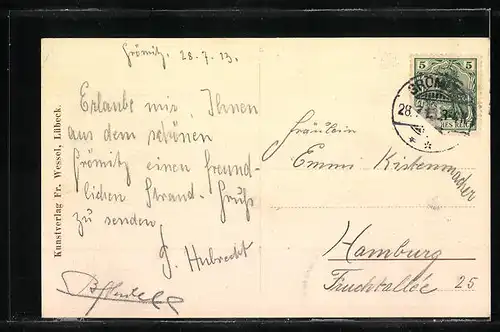 Grömitz, 28.7.13.
Erlaube mir, Ihnen
aus dem schönen
Grömitz einen freund-
lichen Strand-Gruß
zu senden
J. Hubrecht
Kunstverlag Fr. Wessel, Lübeck.
5 5
GRÖMITZ
28.
Fräulein
Emmi Kistenmacher
Hamburg
Fruchtallée 25